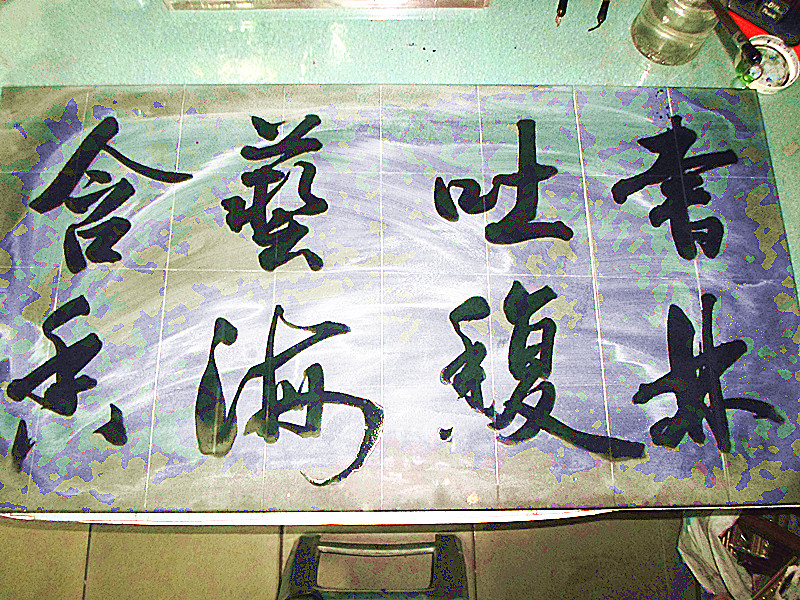 書林
吐馥
藝海
含香